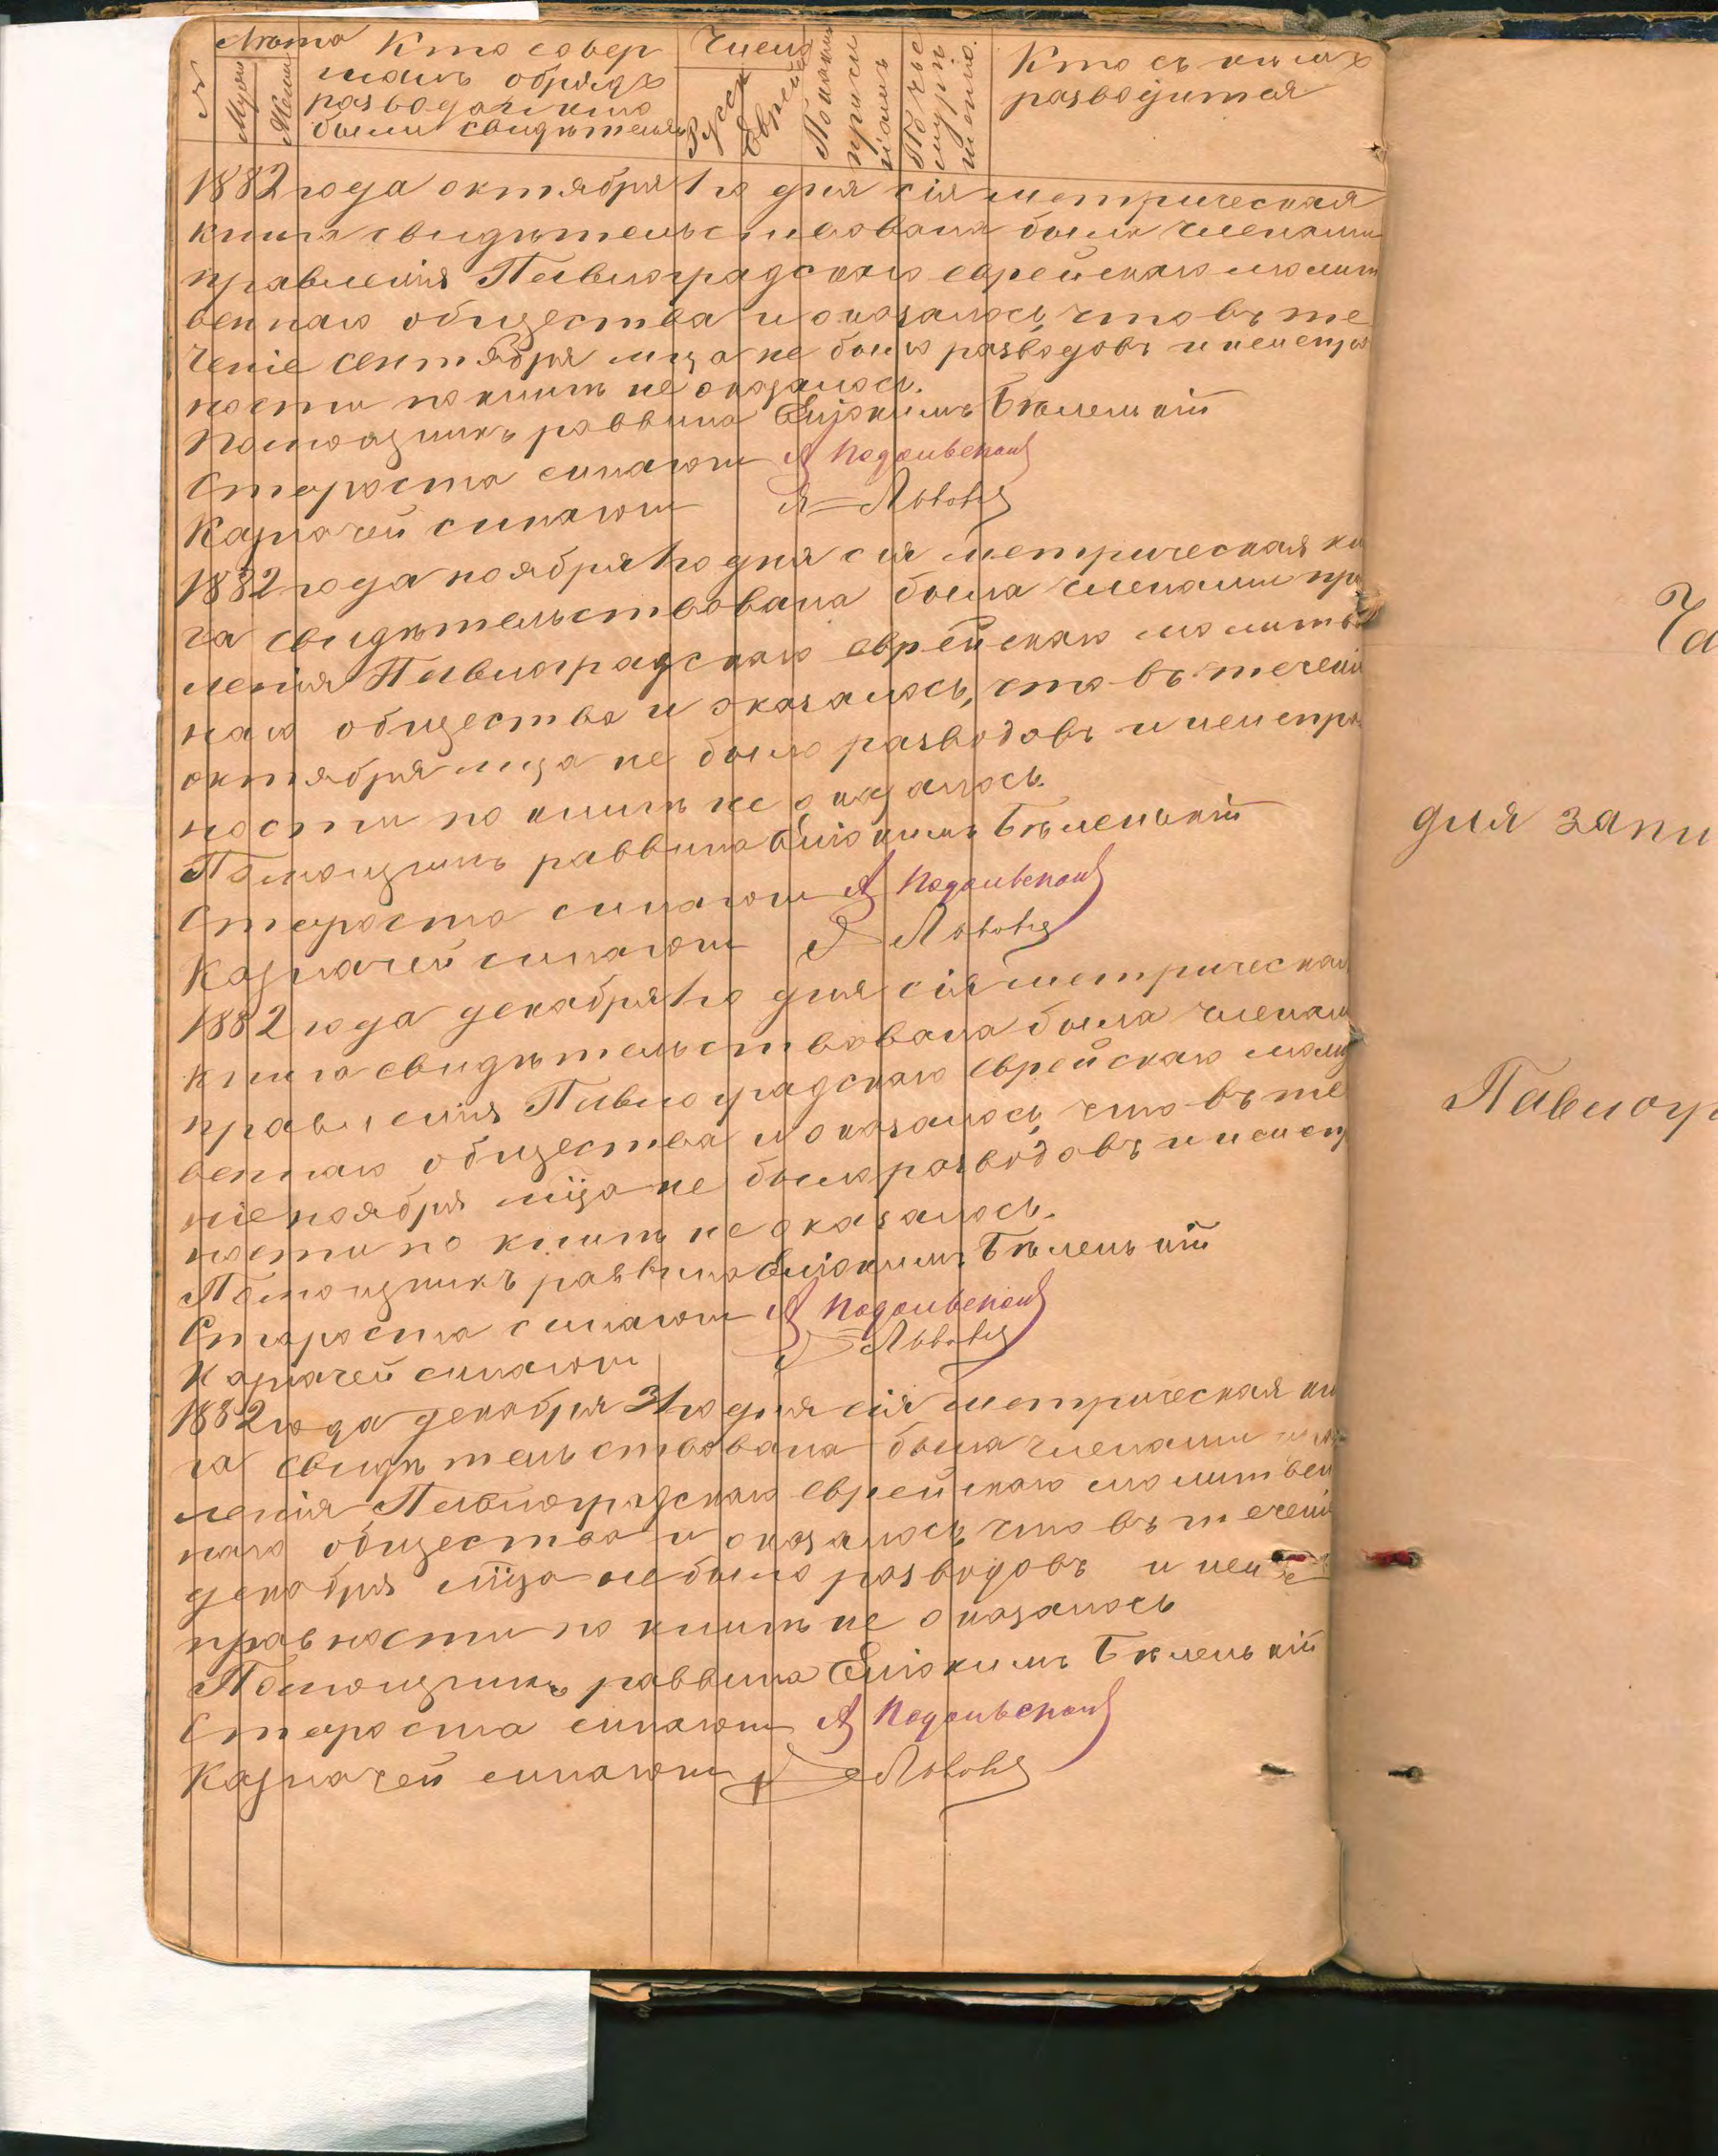 №
Лѣта
Мужа
Жены
Кто совер
шалъ обрядъ
развода и кто
были свидѣтелями
Число
Русск
Еврей
По какимъ
причи
намъ
По чье
му рѣ
шенію.
Кто съ кѣмъ
разводится
1882 года октября 1го дня сія метрическая
книга свидѣтельствована была членами
правленія Павлоградскаго еврейскаго молит
веннаго общества и оказалось, что въ те
ченіе сентября мца не было разводовъ и неиспра
ности по книгѣ не оказалось.
Помощникъ раввина Еліокимъ Бѣленькій
Староста синагоги А Подольскій
Казначей синагоги Я Львовъ
1882 года ноября 1го дня сія метрическая кн
га свидѣтельствована была членами пра
ленія Павлоградскаго еврейскаго молитве
наго общества и оказалось, что въ теченіи
октября мца не было разводовъ и неиспра
ности по книгѣ не оказалось.
Помощникъ раввина Еліокимъ Бѣленькій
Староста синагоги А Подольскій
Казначей синагоги Я Львовъ
1882 года декабря 1го дня сія метрическая
книга свидѣтельствована была членами
правленія Павлоградскаго еврейскаго моли
веннаго общества и оказалось, что въ те
ніе ноября мца не было разводовъ и неисп
ности по книгѣ не оказалось.
Помощникъ раввина Еліокимъ Бѣленькій
Староста синагоги А Подольскій
Казначей синагоги Я Львовъ
1882 года декабря 31го дня сія метрическая кн
га свидѣтельствована была членами
ленія Павлоградскаго еврейскаго молитвен
наго общества и оказалось, что въ теченіи
декабря мца не было разводовъ и неис
правности по книгѣ не оказалось
Помощникъ раввина Еліокимъ Бѣленькій
Староста синагоги А Подольскій
Казначей синагоги Я Львовъ
Ча
для запи
Павлогр